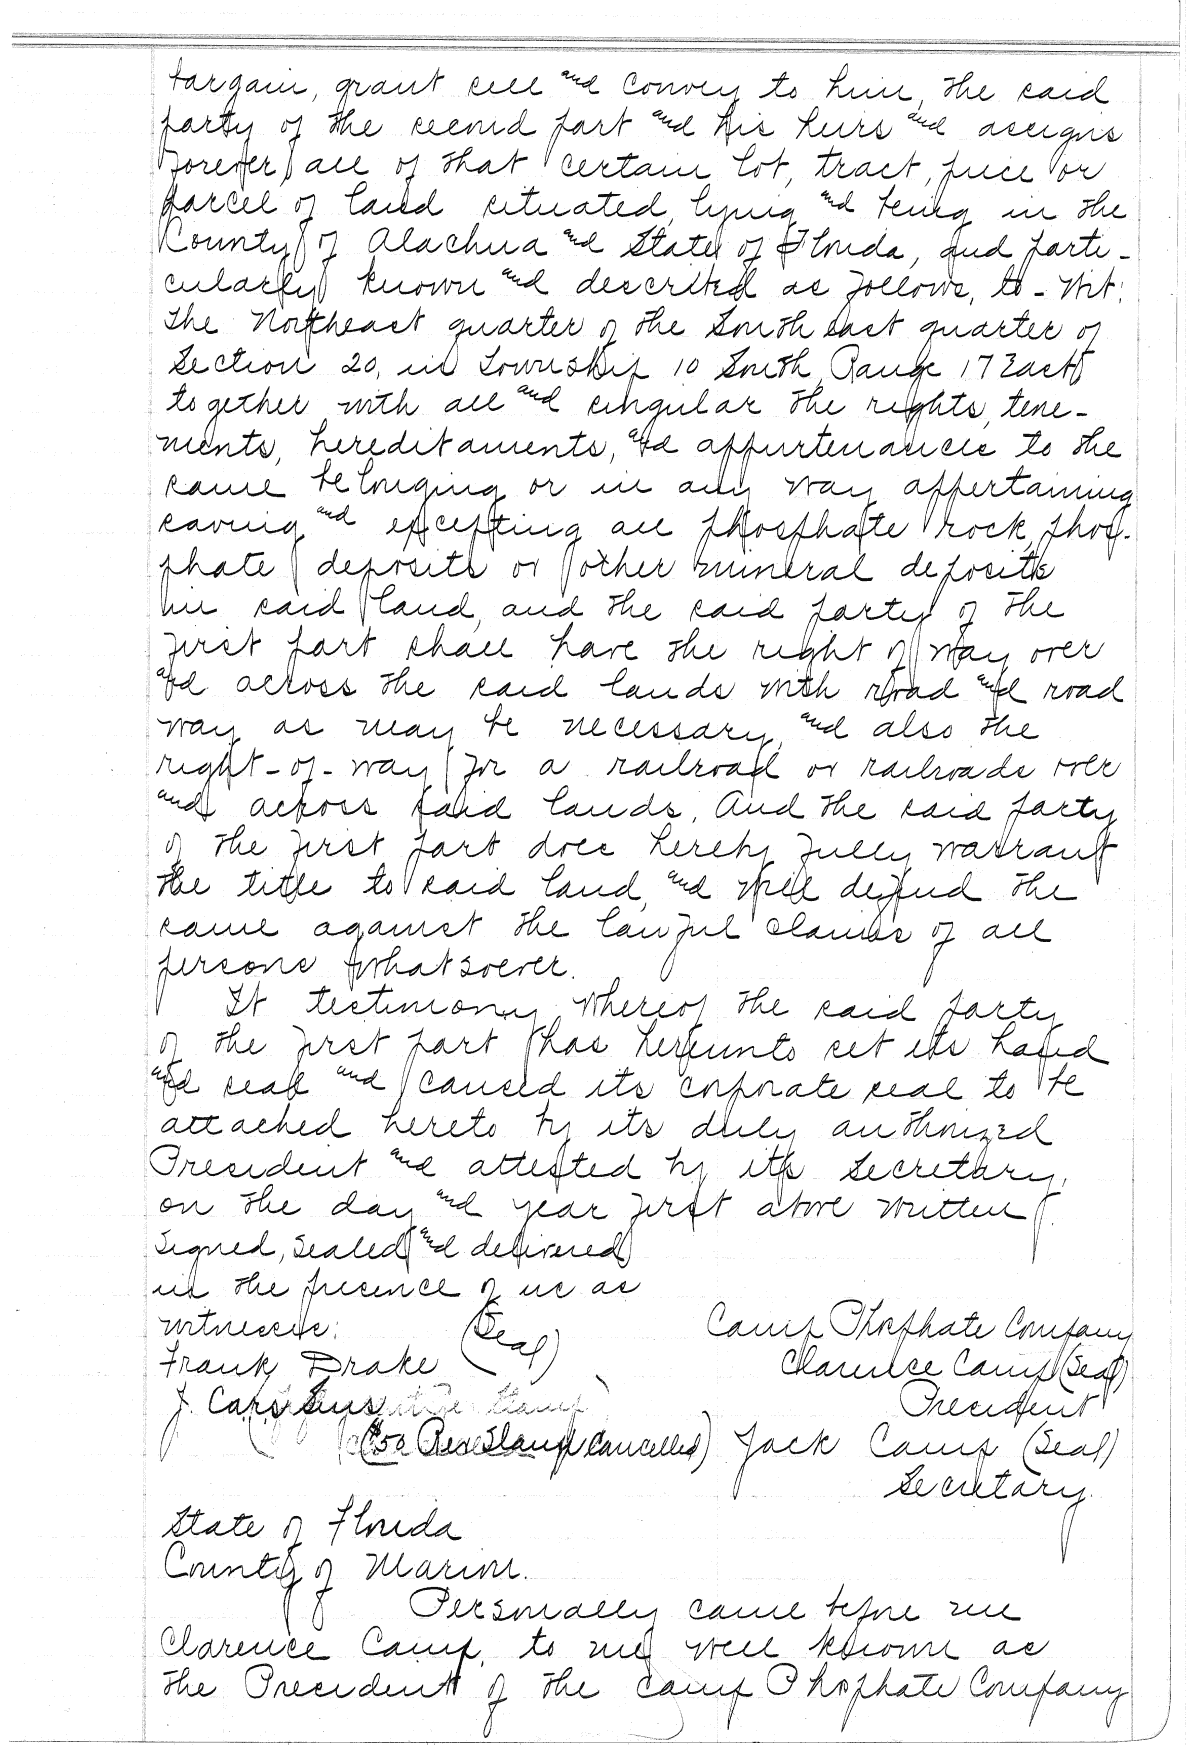 bargain, grant sell and convey to him, the said
party of the second part and his heirs and assigns
forever, all of that certain lot, tract, piece or
parcel of land situated, lying and being in the
County of Alachua and State of Florida, and parti-
cularly known and described as follows, to-wit:
The Northeast quarter of the South east quarter of
Section 20, in Township 10 South, Range 17 East
together with all and singular the rights, tene-
ments, hereditaments, and appurtenances to the
same belonging or in any way appertaining
saving and excepting all phosphate rock, phos-
phate deposits or other mineral deposits
in said land, and the said party of the
first part shall have the right of way over
and across the said lands with road and road
way as may be necessary, and also the
right-of-way for a railroad or railroads over
and across said lands. And the said party
of the first part does hereby fully warrant
the title to said land, and will defend the
same against the lawful claims of all
persons whatsoever.
It testimony whereof the said party
of the first part has hereunto set its hand
and seal and caused its corporate seal to be
attached hereto by its duly authorized
President and attested by its Secretary,
on the day and year first above written.
Signed, Sealed and delivered
in the presence of us as
witnesses: (Seal) Camp Phosphate Company
Frank Drake Clarence Camp (Seal)
J. Cars President
(50 Rev Stamp Cancelled) Jack Camp (Seal)
Secretary.
State of Florida
County of Marion.
Personally came before me
Clarence Camp, to me well known as
the President of the Camp Phosphate Company